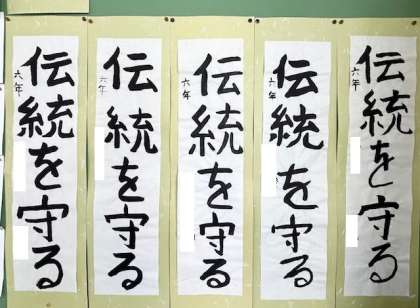 伝統を守る
六年
伝統を守る
六年
伝統を守る
六年
伝統を守る
六年
伝統を守る
六年